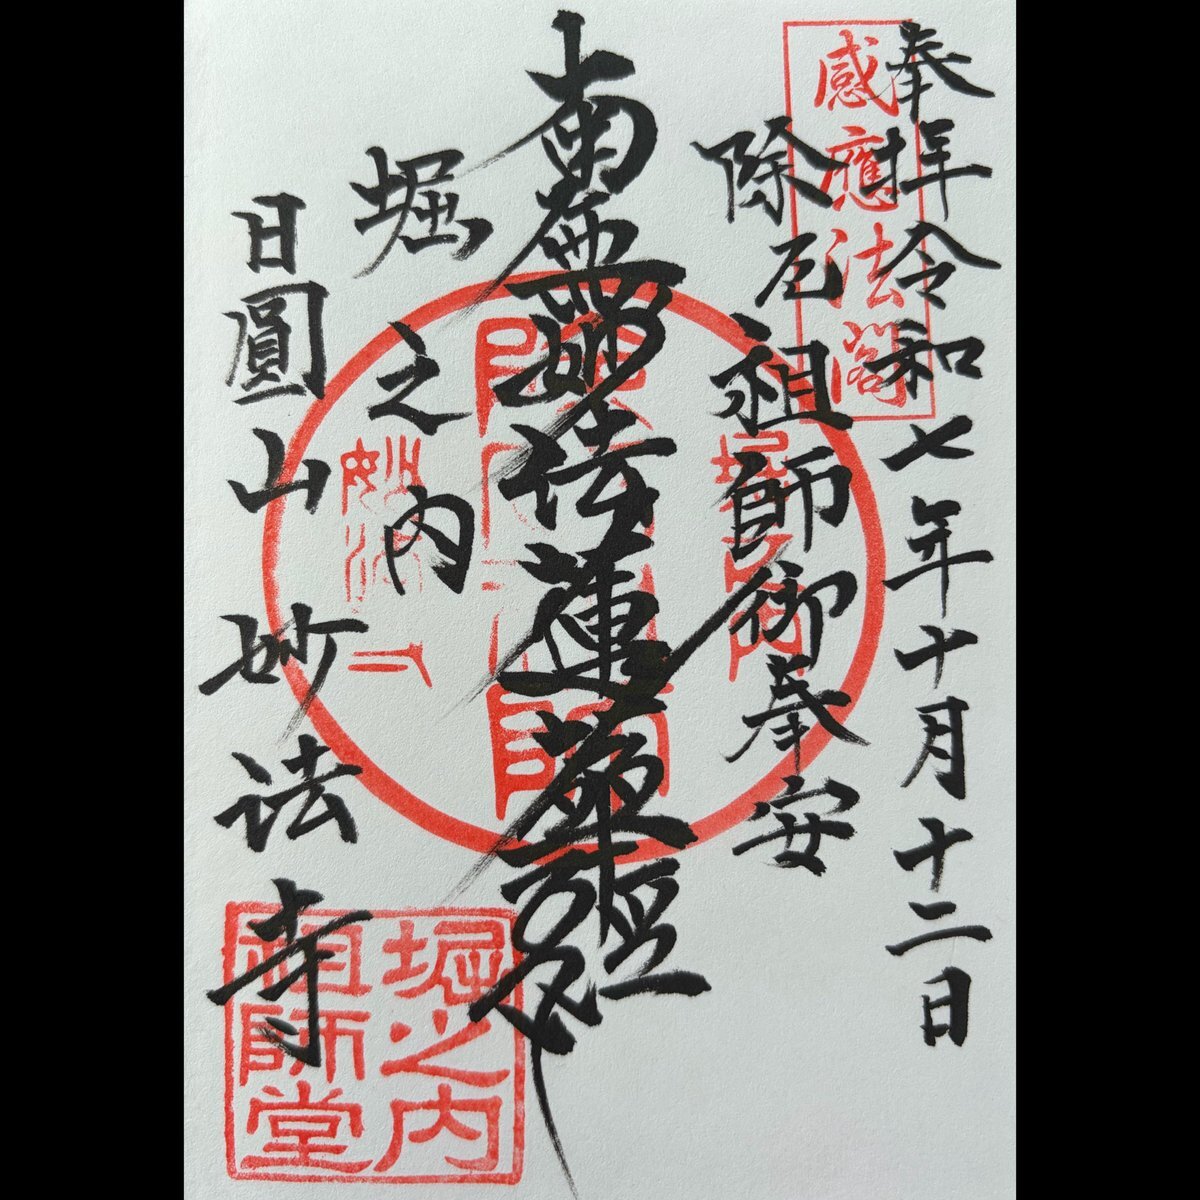 奉拝 令和七年十月十二日
感應法閣
除厄祖師御奉安
南無妙法蓮華經
堀之内
日圓山妙法寺
堀之内
祖師堂